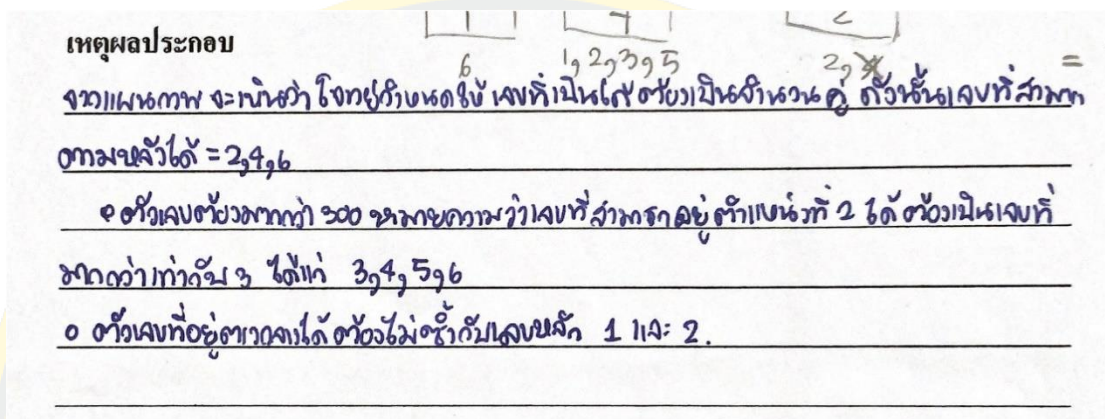 1 4 2
เหตุผลประกอบ
6 1,2,3,5 2, =
จากแผนภาพ จะเห็นว่า โจทย์กำหนดให้ เลขที่เป็นได้ ต้องเป็นจำนวน คู่ ดังนั้นเลขที่สามารถ
ตามหลังได้ = 2,4,6
ตัวเลขต้องมากกว่า 300 หมายความว่าเลขที่สามารถอยู่ ตำแหน่งที่ 2 ได้ ต้องเป็นเลขที่
มากกว่าเท่ากับ 3 ได้แก่ 3,4,5,6
ตัวเลขที่อยู่ตรงกลางได้ ต้องไม่ซ้ำกับเลขหลัก 1 และ 2.